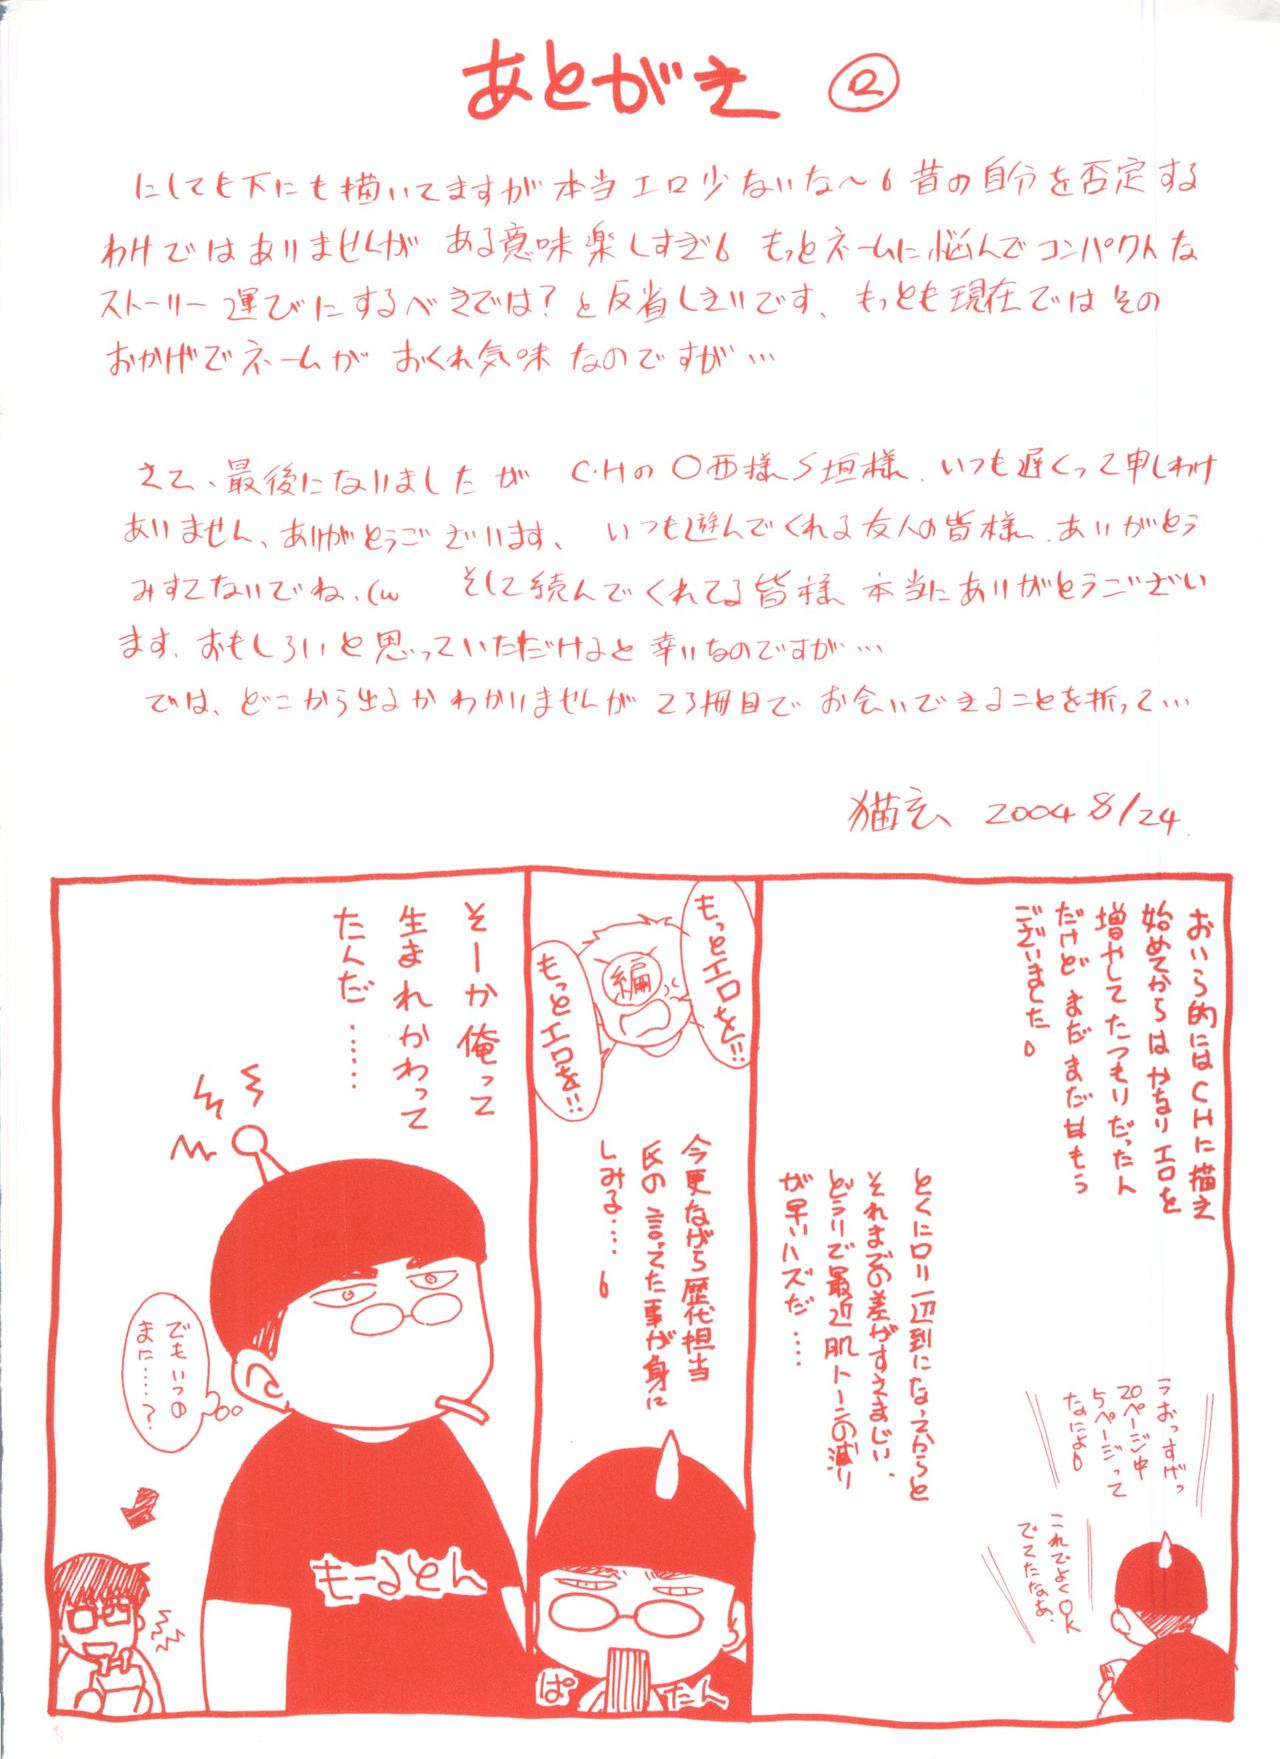 あとがき ②
にしても下にも描いてますが本当エロ少ないな〜昔の自分を否定する
わけではありませんが ある意味楽しすぎ もっとネームに悩んでコンパクトな
ストーリー運びにするべきでは?と反省しきりです、もっとも現在ではその
おかげでネームが おくれ気味なのですが…
さて、最後になりましたが C・Hの〇西様S垣様、いつも遅くって申しわけ
ありません、ありがとうございます、いつも遊んでくれる友人の皆様、ありがとう
みすてないでね、(w そして続んでくれてる皆様 本当にありがとうござい
ます、おもしろいと思っていただけると幸いなのですが…
では、どこから出るかわかりませんが 23冊目で お会いできることを祈って…
猫玄 2004 8/24
おいら的にはCHに描え
始めてからはかなりエロを
増やしてたつもりだったん
だけど まだまだ甘もう
ございました
うおっすげっ
20ページ中
5ページって
なによ
これでよくOK
でてたなあ、
とくにロリ一辺到になってからと
それまでの差がすさまじい、
どうりで最近肌トーンの減り
が早いハズだ…
もっとエロを!!
編
もっとエロを!!
今更ながら歴代担当
氏の言ってた事が身に
しみる…
ぱたん
そーか俺って
生まれかわって
たんだ……
でもいつの
まに……?
もーるとん